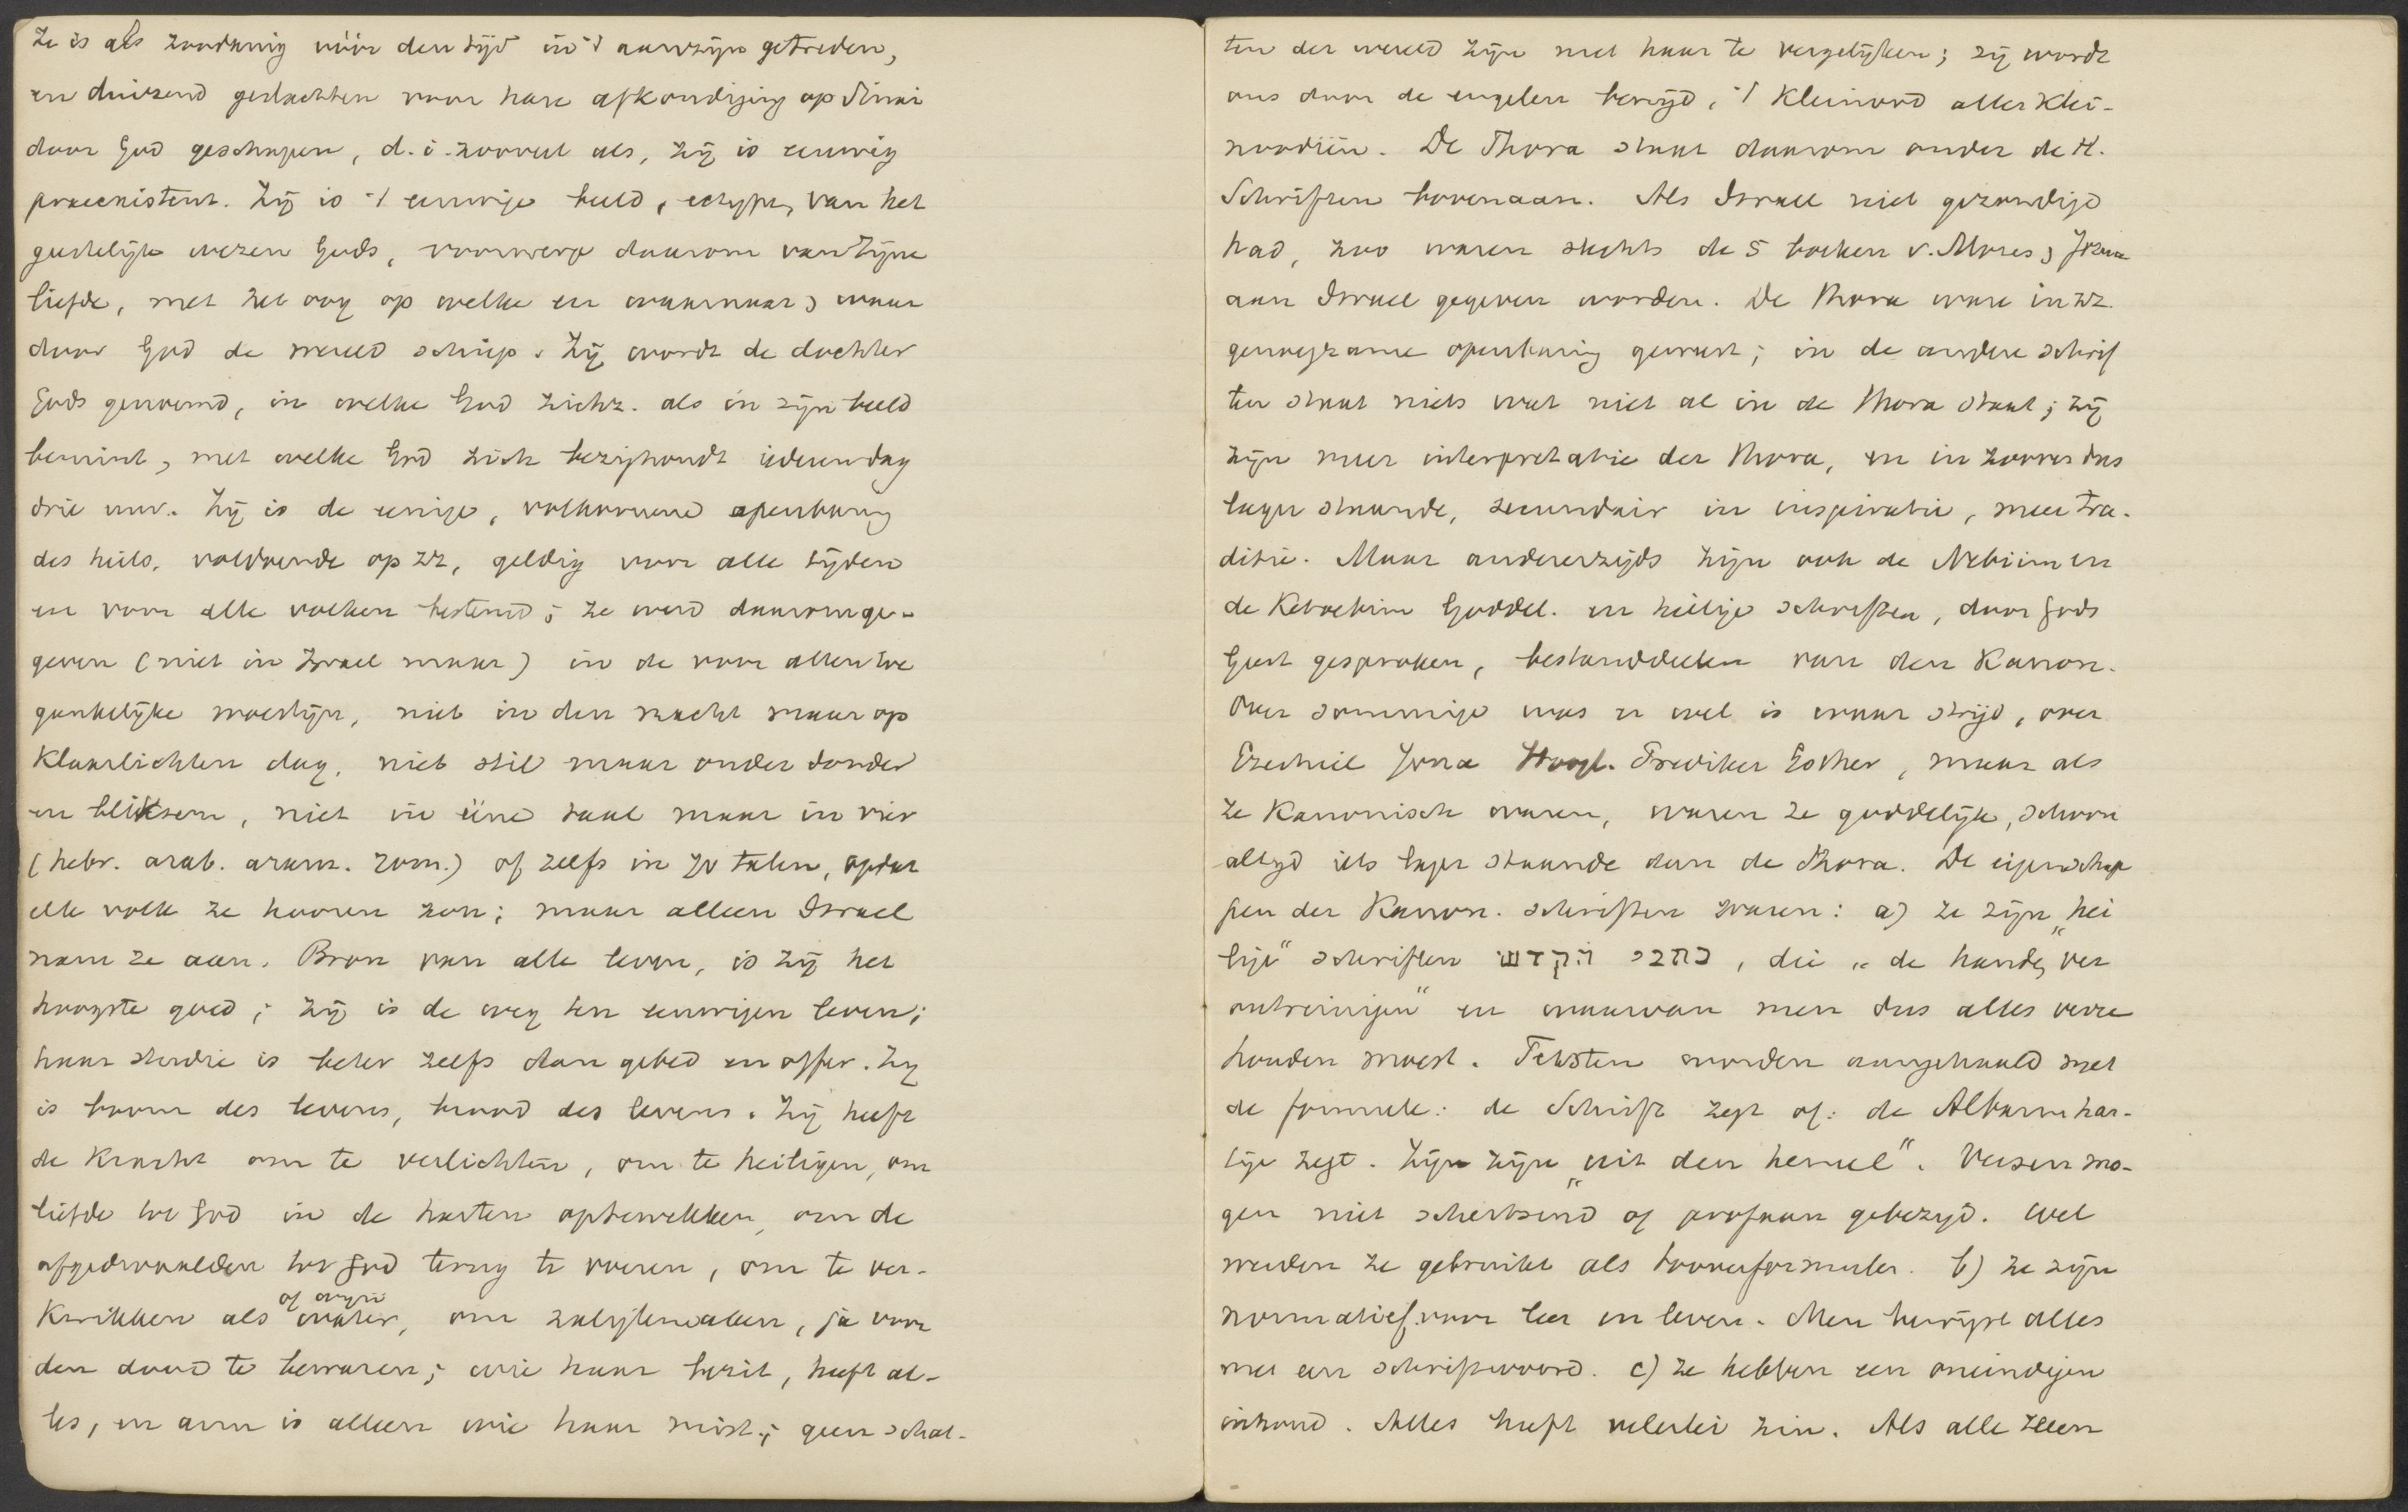 Ze is als zoodanig vóór den tijd in 't aanzijn getreden,
en duizend geslachten voor hare afkondiging op Sinai
door God geschapen, d. i. zooveel als, zij is eeuwig
praeexistent. Zij is 't eeuwige beeld, ectype, van het
geestelijk wezen Gods, voorwerp daarom van Zijne
liefde, met het oog op welke en waarnaar, waar
door God de wereld schiep. Zij wordt de dochter
Gods genoemd, in welke God zichz. als in zijn beeld
bemint, met welke God zich bezighoudt iederen dag
drie uur. Zij is de eenige, volkomene openbaring
des heils, voldoende op zz, geldig voor alle tijden
en voor alle volken bestemd; ze werd daarom ge-
geven (niet in Israel maar) in de voor allen toe
gankelijke woestijn, niet in den nacht maar op
klaarlichten dag, niet stil maar onder donder
en bliksem, niet in ééne taal maar in vier
(hebr. arab. aram. rom.) of zelfs in 70 talen, opdat
elk volk ze hooren zou; maar alleen Israel
nam ze aan. Bron van alle leven, is zij het
hoogste goed; zij is de weg ten eeuwigen leven;
haar studie is beter zelfs dan gebed en offer. Zij
is boom des levens, brood des levens. Zij heeft
de kracht om te verlichten, om te heiligen, om
liefde tot God in de harten optewekken, om de
afgedwaalden tot God terug te voeren, om te ver-
kwikken als water of wijn, om zaligtemaken, ja voor
den dood te bewaren; wie haar bezit, heeft al-
les, en arm is alleen wie haar mist; geen schat-
ten der wereld zijn met haar te vergelijken; zij wordt
ons door de engelen benijd, 't kleinood aller klei-
noodiën. De Thora staat daarom onder de H.
Schriften bovenaan. Als Israel niet gezondigd
had, zoo waren slechts de 5 boeken v. Mozes & Jozua
aan Israel gegeven worden. De Thora ware in zz.
genoegzame openbaring geweest; in de andere schrif
ten staat niets wat niet al in de Thora staat; zij
zijn meer interpretatie der Thora, en in zoover dus
lager staande, secundair in inspiratie, meer tra-
ditie. Maar andererzijds zijn ook de Nebiim en
de Ketoebim Goddel. en heilige schriften, door Gods
Geest gesproken, bestanddeelen van den Kanon.
Over sommige was er wel is waar strijd, over
Ezechiel Jona Hoogl. Prediker Esther, maar als
ze Kanonisch waren, waren ze goddelijk, schoon
altijd iets lager staande dan de Thora. De eigenschap
pen der Kanon. schriften waren: a) ze zijn „hei
lige" schriften כתבי הקדש, die „de handen ver
ontreinigen" en waarvan men dus alles verre
houden moest. Teksten worden aangehaald met
de formule: de Schrift zegt of: de Albarmhar-
tige zegt. Zijn zijn „uit den hemel". Verzen mo-
gen niet schertsend of profaan gebezigd. Wel
werden ze gebruikt als tooverformules. b) ze zijn
normatief voor leer en leven. Men bewijst alles
met een schriftwoord. c) ze hebben een oneindigen
inhoud. Alles heeft velerlei zin. Als alle zeeen